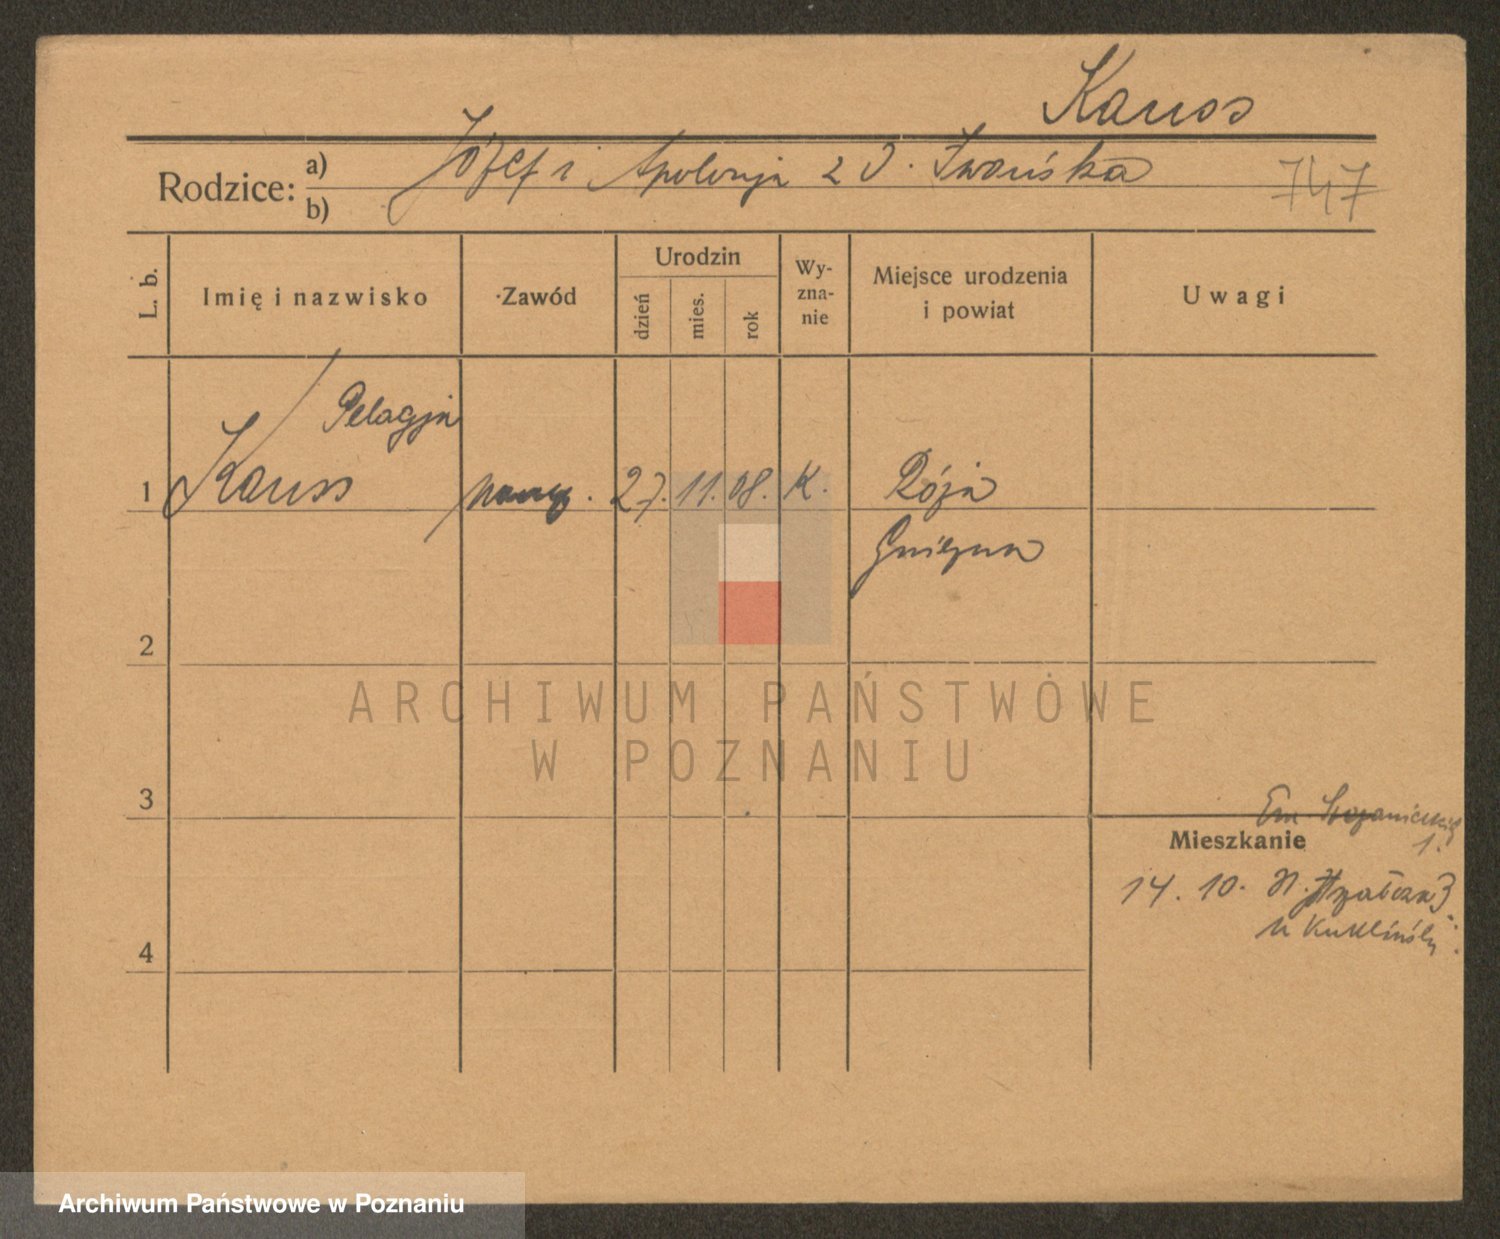 Kauss
Rodzice: a) Józef i Apolonja z d. Iwańska
b)
747
L. b.
Imię i nazwisko
Zawód
Urodzin
dzień
mies.
rok
Wy-
zna-
nie
Miejsce urodzenia
i powiat
Uwagi
Pelagja
1 Kauss naucz. 27. 11. 08. K. Róża
Gniezna
2
ARCHIWUM PAŃSTWOWE
W POZNANIU
3
Mieszkanie
1.
14. 10.
3
u Kuklińsk
4
Archiwum Państwowe w Poznaniu